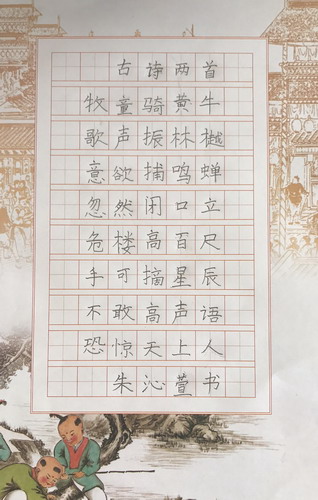 古诗两首
牧童骑黄牛
歌声振林樾
意欲捕鸣蝉
忽然闭口立
危楼高百尺
手可摘星辰
不敢高声语
恐惊天上人
朱沁萱书